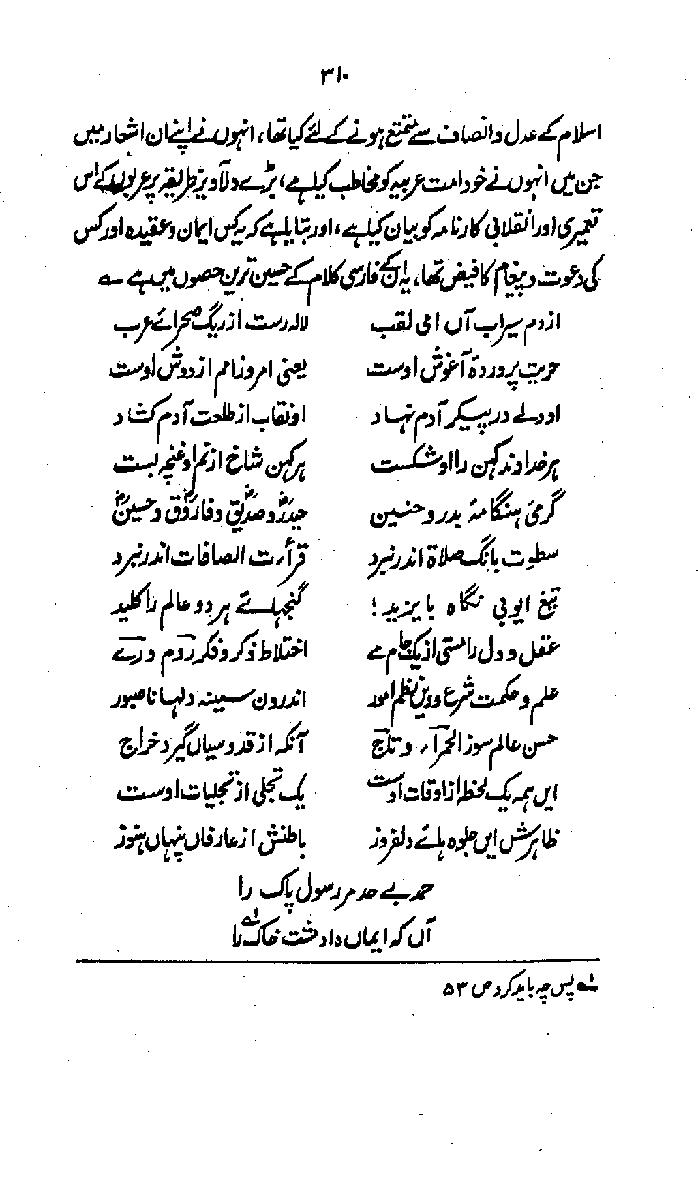 ۳۱۰
اسلام کے عدل و انصاف سے متمتع ہونے کے لئے کیا تھا، انہوں نے اپنے ان اشعار میں
جن میں انہوں نے خود امت عربیہ کو مخاطب کیا ہے، بڑے دلآویز طریقہ پر عربوں کے اس
تعمیری اور انقلابی کارنامہ کو بیان کیا ہے، اور بتایا ہے کہ یہ کس ایمان و عقیدہ اور کس
کی دعوت و پیغام کا فیض تھا، یہ ان کے فارسی کلام کے حسین ترین حصوں میں ہے ؎
از دم سیراب آں امی لقب لالہ رست از ریگ صحرائے عرب
حریت پروردۂ آغوش اوست یعنی امروز امم از دوش اوست
او دلے در پیکر آدم نہاد او نقاب از طلعت آدم کشاد
ہر خداوند کہن را او شکست ہر کہن شاخ از نم او غنچہ بست
گرمیٔ ہنگامۂ بدر و حنین حیدرؓ و صدیقؓ و فاروقؓ و حسینؓ
سطوت بانگ صلاۃ اندر نبرد قرأت الصافات اندر نبرد
تیغ ایوبی نگاہ بایزید! گنجہائے ہر دو عالم را کلید
عقل و دل را مستی از یک جام مے اختلاط ذکر و فکر روم و رے
علم و حکمت شرع و دیں نظم امور اندرون سینہ دلہا ناصبور
حسن عالم سوز الحمراء و تاج آنکہ از قدوسیاں گیرد خراج
ایں ہمہ یک لحظہ از اوقات اوست یک تجلی از تجلیات اوست
ظاہرش ایں جلوہ ہائے دلفروز باطنش از عارفاں پنہاں ہنوز
حمد بے حد مر رسول پاک را
آں کہ ایماں داد مشت خاک را ۱؎
۱؎ پس چہ باید کرد ص ۵۳